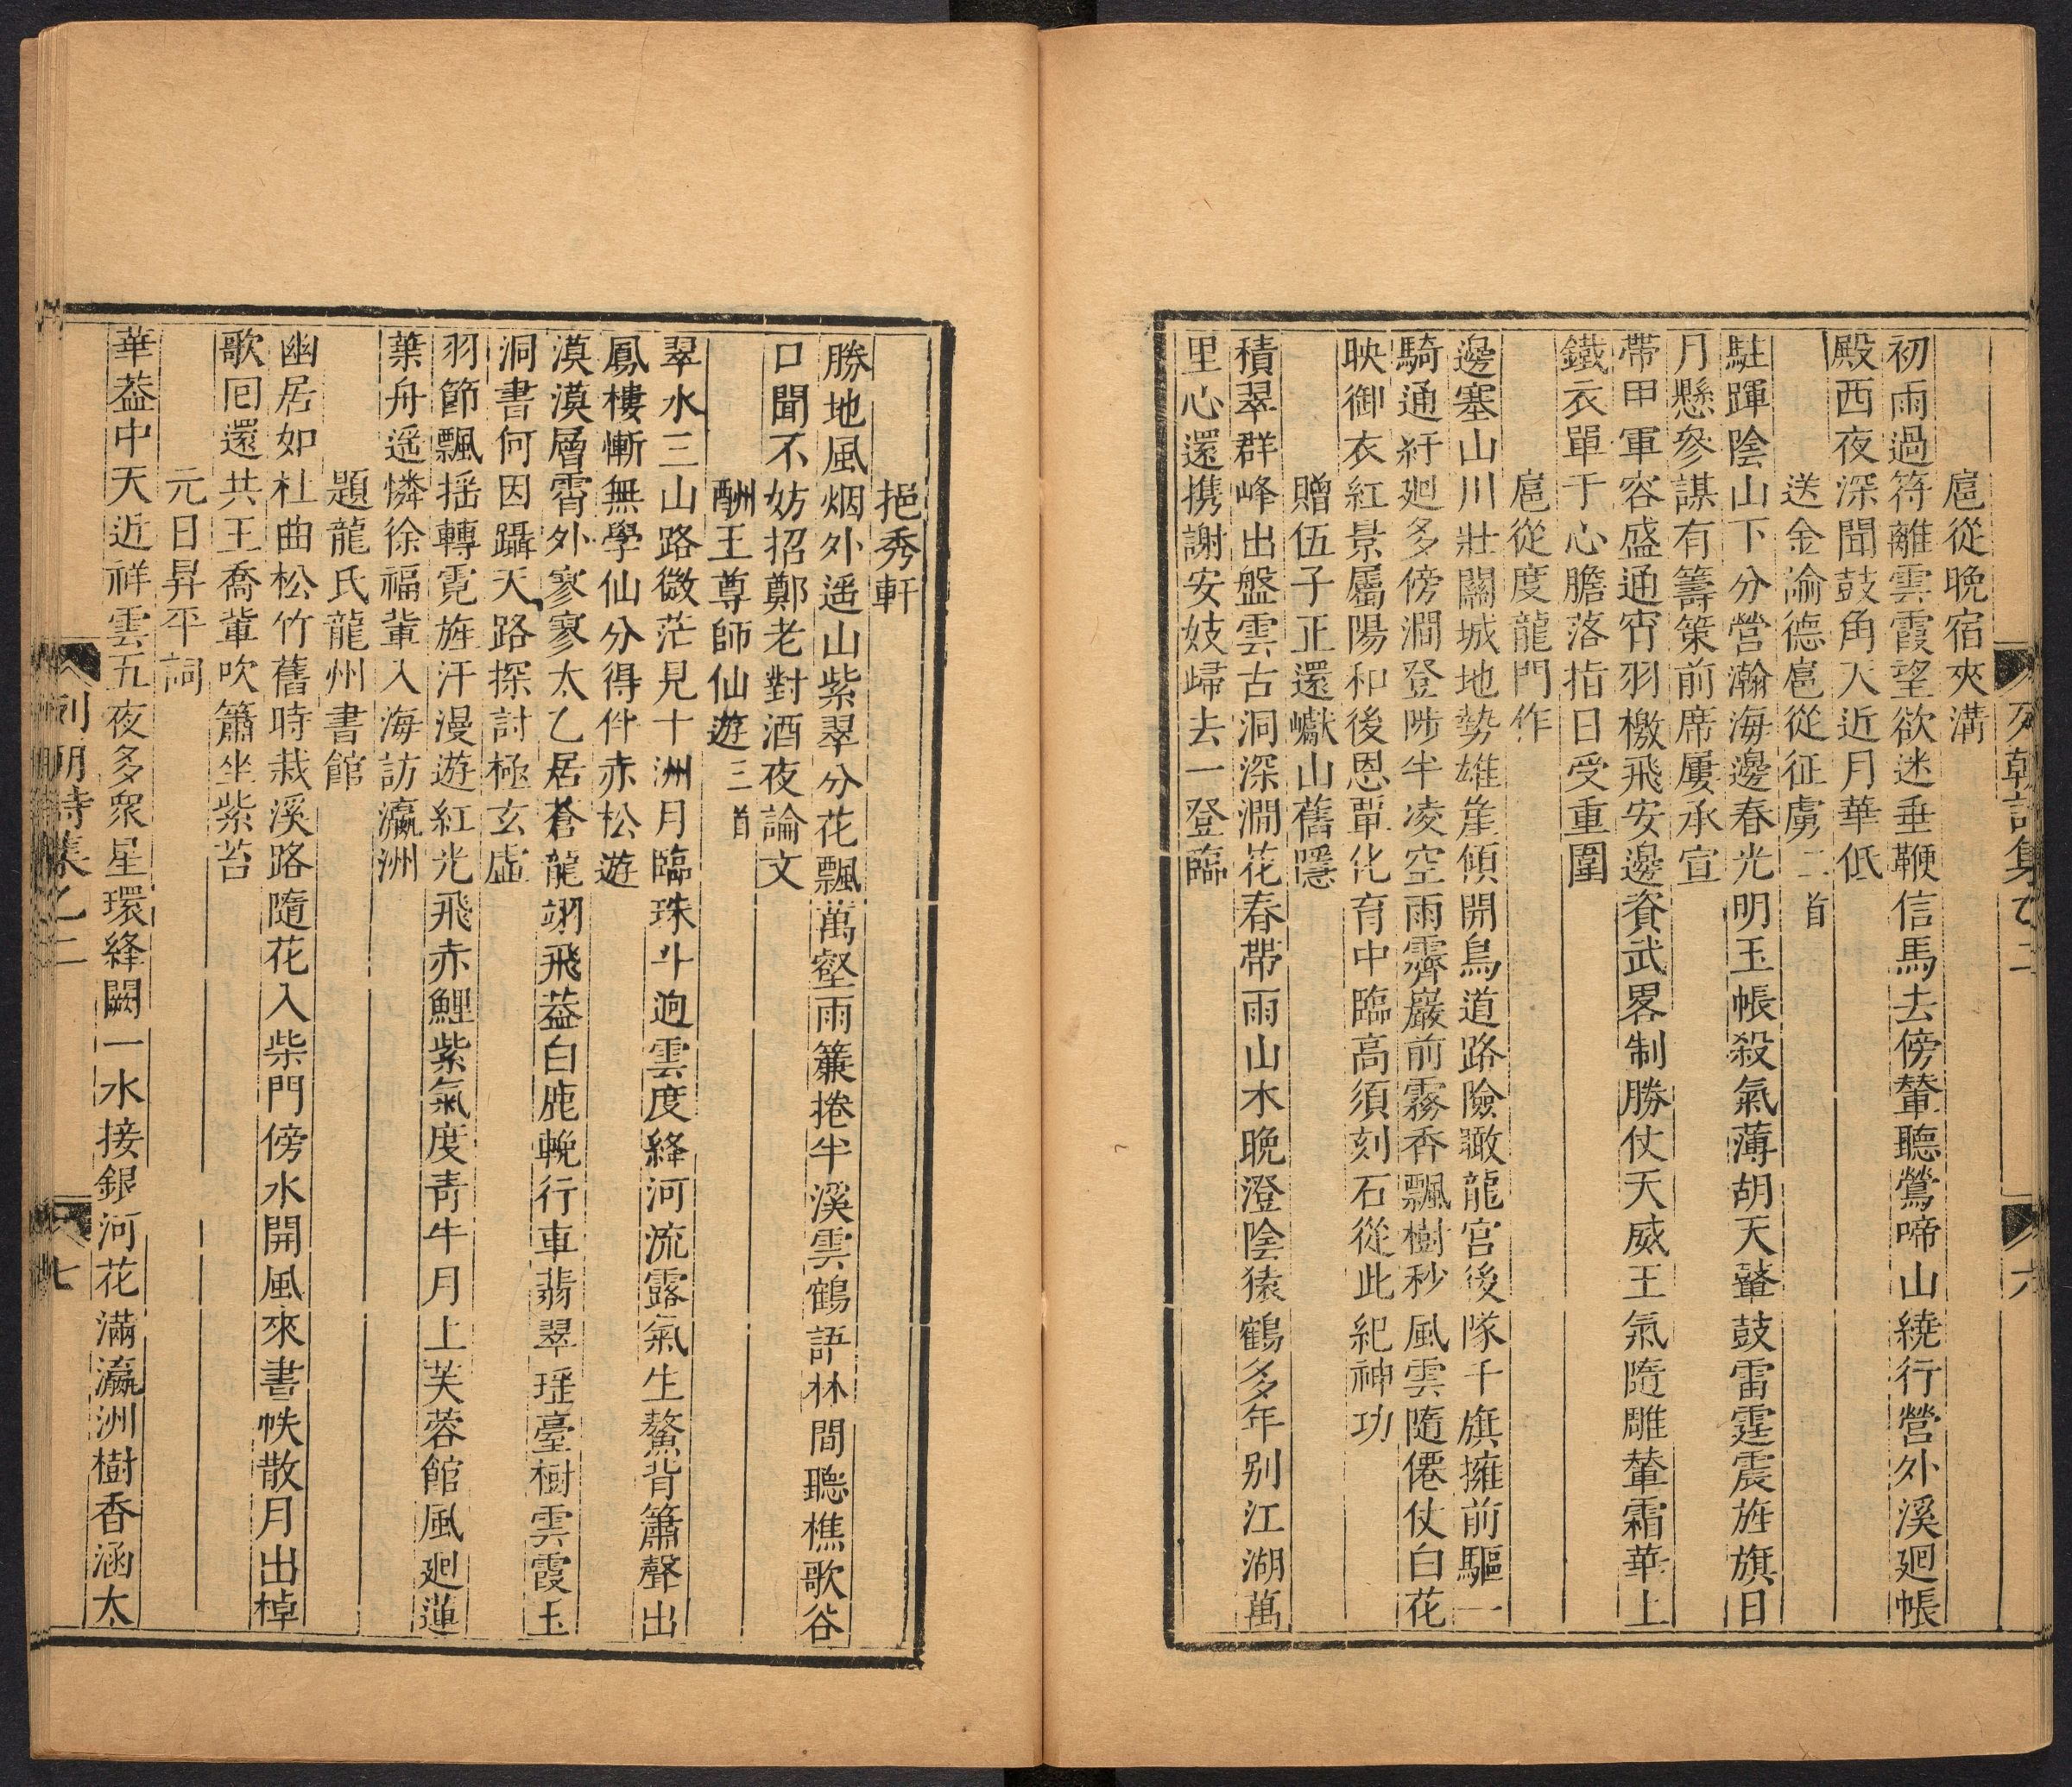 扈從晚宿夾溝
初雨過符離雲霞望欲迷垂鞭信馬去傍輦聽鶯啼山繞行營外溪廻帳
殿西夜深聞鼓角天近月華低
送金諭德扈從征虜二首
駐蹕陰山下分營瀚海邊春光明玉帳殺氣薄胡天鼙鼓雷霆震旌旗日
月懸參謀有籌策前席屢承宣
帶甲軍容盛通宵羽檄飛安邊資武畧制勝仗天威王氣隨雕輦霜華上
鐵衣單于心膽落指日受重圍
扈從度龍門作
邊塞山川壯關城地勢雄崖傾開鳥道路險瞰龍宮後隊千旗擁前驅一
騎通紆廻多傍澗登陟半凌空雨霽巖前霧香飄樹杪風雲隨僊仗白花
映御衣紅景屬陽和後恩覃化育中臨高須刻石從此紀神功
贈伍子正還巘山舊隱
積翠群峰出盤雲古洞深澗花春帶雨山木晚澄陰猿鶴多年别江湖萬
里心還携謝安妓歸去一登臨
列朝詩集乙二
六
挹秀軒
勝地風烟外遥山紫翠分花飄萬壑雨簾捲半溪雲鶴語林間聽樵歌谷
口聞不妨招鄭老對酒夜論文
酬王尊師仙遊三首
翠水三山路微茫見十洲月臨珠斗迥雲度絳河流露氣生鰲背簫聲出
鳳樓慚無學仙分得伴赤松遊
漠漠層霄外寥寥太乙居蒼龍翊飛葢白鹿輓行車翡翠瑶臺樹雲霞玉
洞書何因躡天路探討極玄虛
羽節飄揺轉霓旌汗漫遊紅光飛赤鯉紫氣度青牛月上芙蓉館風廻蓮
葉舟遥憐徐福輩入海訪瀛洲
題龍氏龍州書館
幽居如杜曲松竹舊時栽溪路隨花入柴門傍水開風來書帙散月出棹
歌囘還共王喬輩吹簫坐紫苔
元日昇平詞
華葢中天近祥雲五夜多衆星環絳闕一水接銀河花滿瀛洲樹香涵太
列朝詩集乙二
七